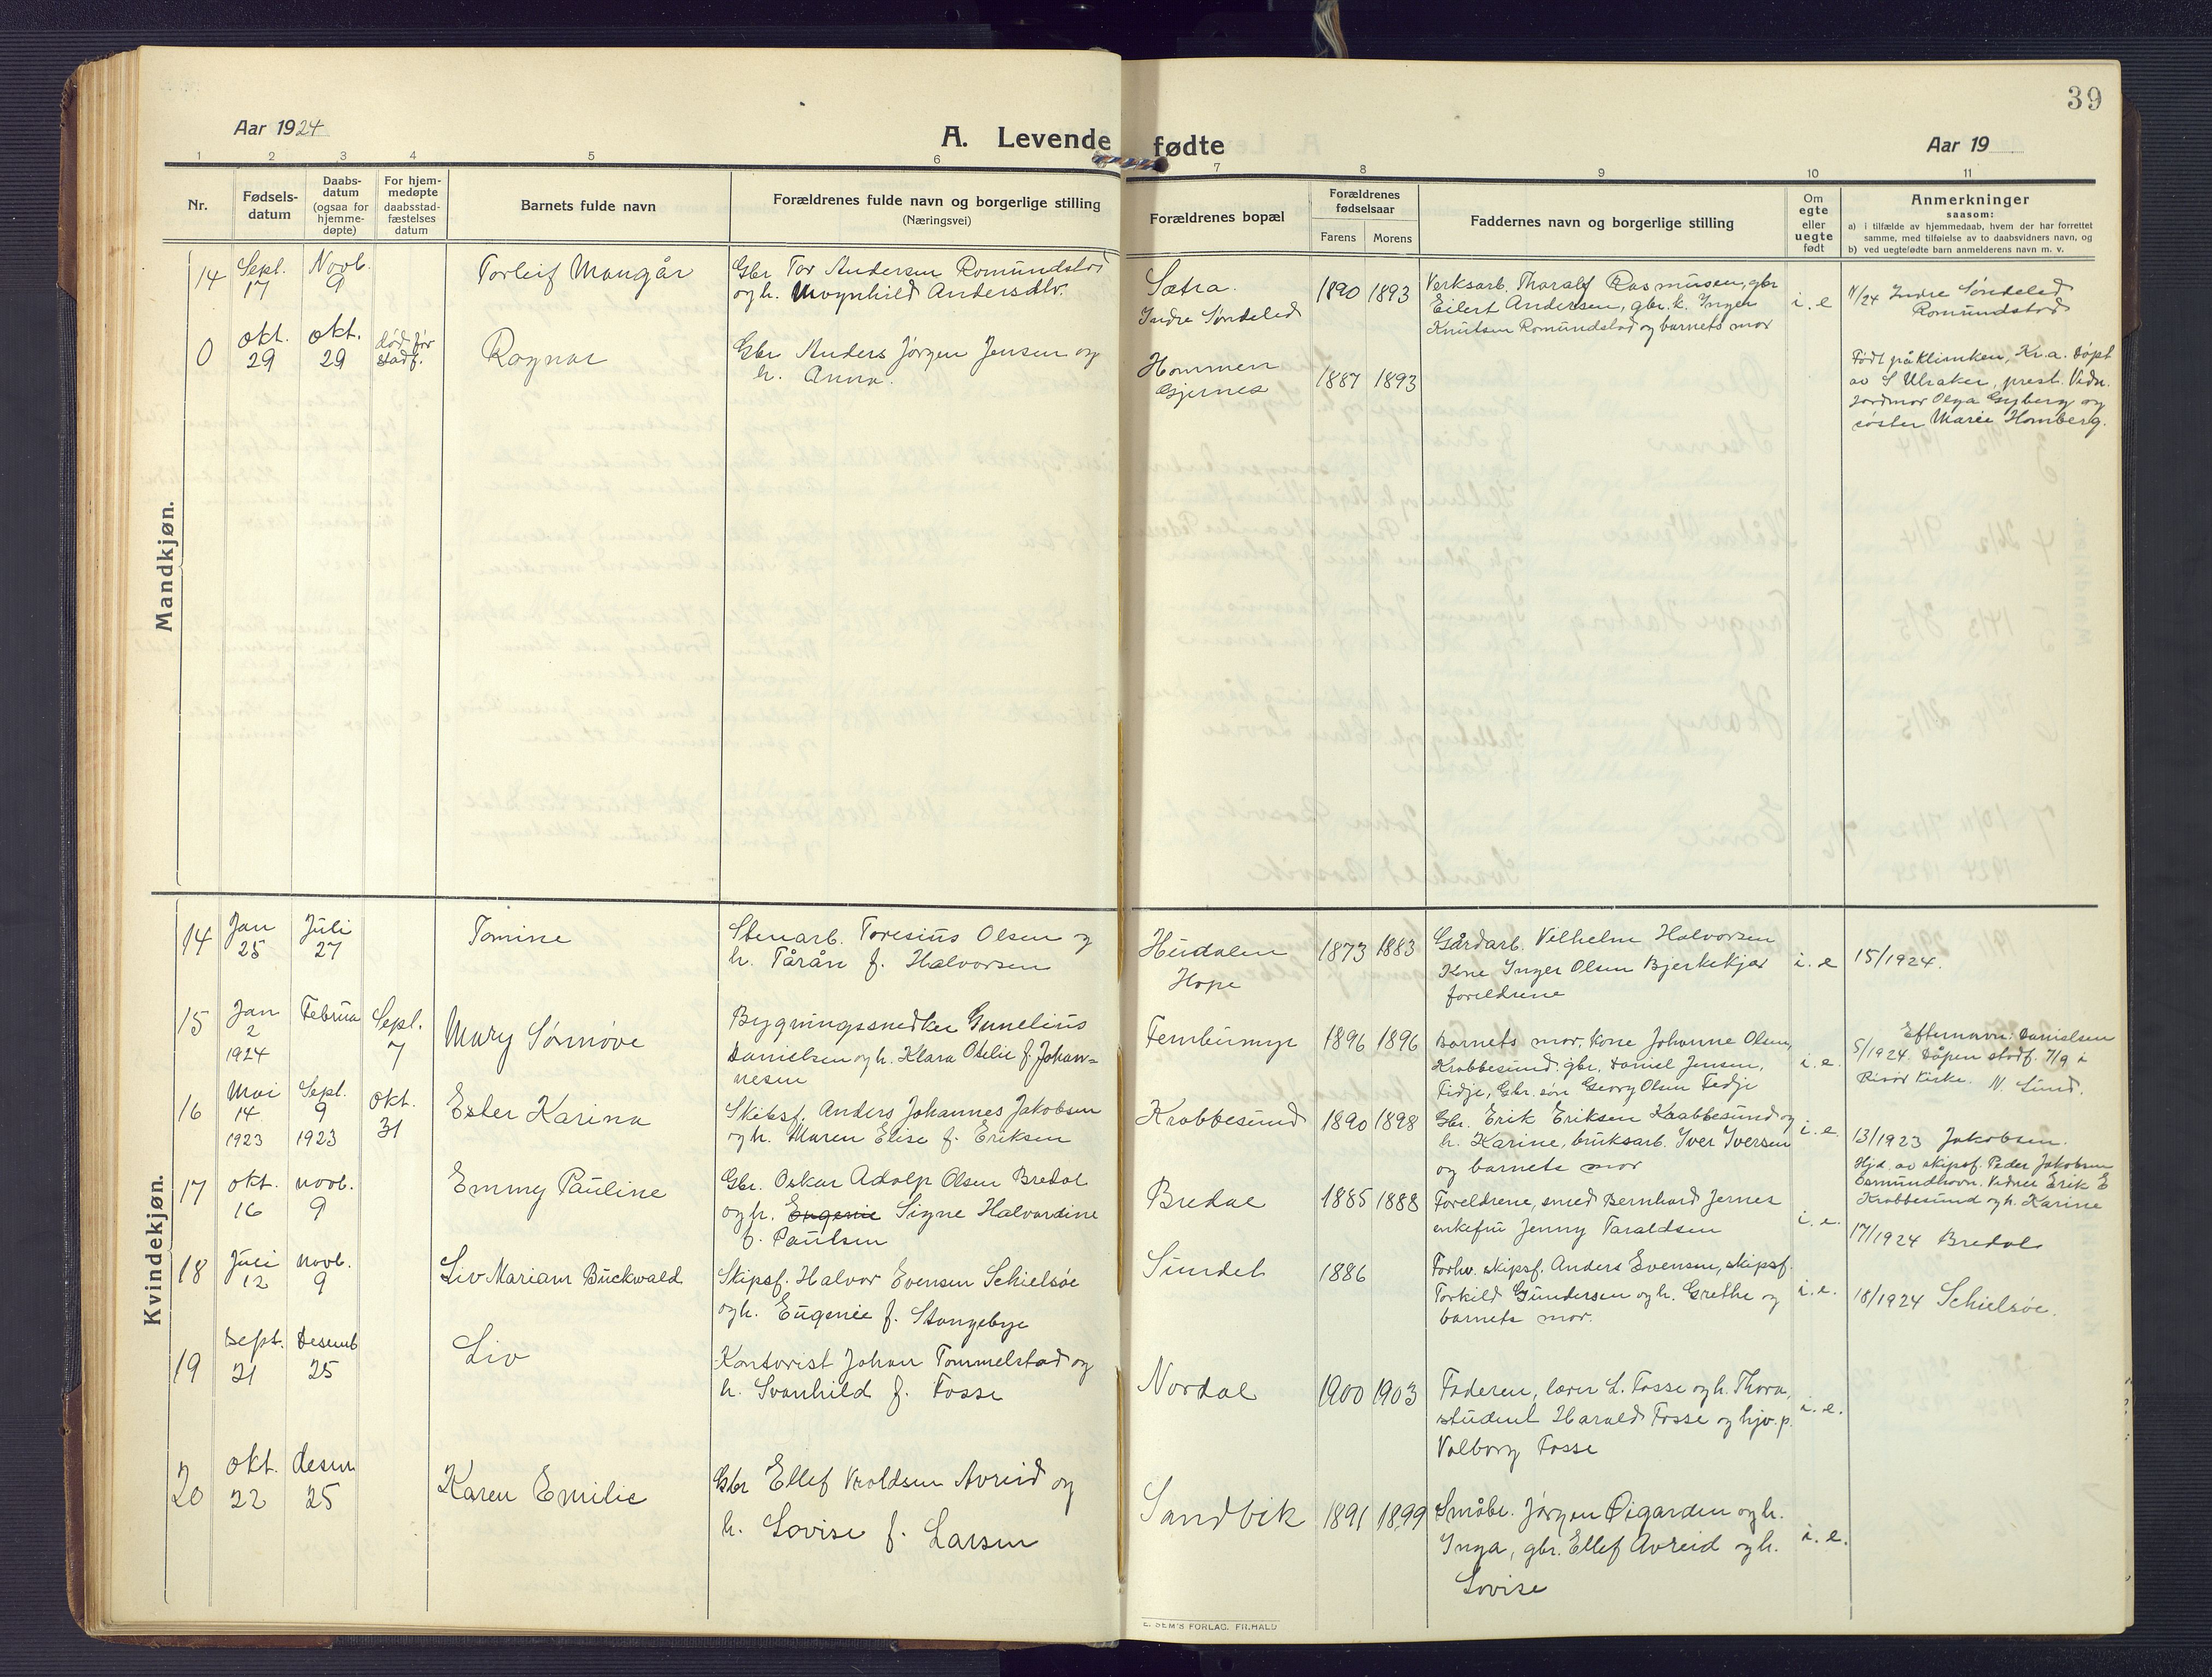 39
Aar 1924
A. Levende fødte
Aar 19
1 2 3 4 5 6 7 8 9 10 11
Nr.
Fødsels-
datum
Daabs-
datum
(ogsaa for
hjemme-
døpte)
For hjem-
medøpte
daabsstad-
fæstelses
datum
Barnets fulde navn
Forældrenes fulde navn og borgerlige stilling
(Næringsvei)
Forældrenes bopæl
Forældrenes
fødselsaar
Farens Morens
Faddernes navn og borgerlige stilling
Om
egte
eller
uegte
født
Anmerkninger
saasom:
a) i tilfælde av hjemmedaab, hvem der har forrettet
samme, med tilføielse av to daabsvidners navn, og
b) ved uegtefødte barn anmelderens navn m. v.
Mandkjøn.
14
Sept.
17
Novb.
9
Torleif Maugår
Gbr Tor Andersen Romundstad
og h. Moynhild Andersdtr.
Sætra.
Indre Søndeled
1890 1893
Verksarb. Tharalf Rasmussen, gbr
Eilert Andersen, gbr. k. Inger
Knutsen Romundstad og barnets mor
i. e
11/24 Indre Søndeled
Romundstad
0
okt.
29
okt.
29
død før
stadf.
Ragnar
Gbr Anders Jørgen Jensen og
h. Anna.
Hommen
Gjernes
1887 1893
Født på Klinken, Kr.a. døpt
av S Ulsaker, prest. Vidn.
Jordmor Olga Gyberg og
søster Marie Homberg.
Kvindekjøn.
14
Jan
25
Juli
27
Tomine
Stenarb. Toresius Olsen og
h. Tårån f. Halvorsen
Heidalen
Hope
1873 1883
Gårdarb. Vilhelm Halvorsen
Kone Inger Olsen Bjerkekjær
foreldrene
i. e
15/1924.
15
Jan
2
1924
Februa
Sept.
7
Mary Sørnøve
Bygningssnedker Gunelius
Danielsen og h. Klara Otelie f. Johan=
nesen
Fembumyr
1896 1896
Barnets mor. Kone Johanne Olsen,
Krabbesund. gbr. Daniel Jensen,
Fidje, Gbr. søn Georg Olsen Fedje
i. e.
Efternavn: Danielsen
5/1924. Dåpen stadf. 7/9 i
Risør Kirke. N. Lund.
16
Mai
14
1923
Sept.
9
1923
Okt.
31
Ester Karina
Skibsf. Anders Johannes Jakobsen
og h. Maren Elise f. Eriksen
Krabbesund
1890 1898
Gbr. Erik Eriksen Krabbesund og
h. Karine, bruksarb. Iver Iversen
og barnets mor
i. e.
13/1923 Jakobsen.
Hjd. av skipsf. Peder Jakobsen
Osmundhavn. Vidner Erik E
Krabbesund og h. Karine
17
okt.
16
novb.
9
Emmy Pauline
Gbr. Oskar Adolp Olsen Bredal
og h. Eugenie Signe Halvardine
f. Paulsen
Bredal
1885 1888
Foreldrene, smed Bernhard Jernes
enkefru Jenny Taraldsen
i. e.
17/1924 Bredal
18
Juli
12
novb.
9
Liv Mariam Buckwald
Skipsf. Halvor Evensen Schielsøe
og h. Eugenie f. Stangebye
Sundet
1886
Forhv. skipsf. Anders Evensen, skipsf.
Torkild Gundersen og h. Grethe og
barnets mor.
i. e.
18/1924 Schielsøe.
19
Sept.
21
Desemb
25
Liv
Kontorist Johan Tommelstad og
h. Svanhild f. Fosse
Nordal
1900 1903
Faderen, lærer L. Fosse og h. Thora,
student Harald Fosse og hjv. p.
Valborg Fosse
i. e.
20
okt.
22
desem
25
Karen Emilie
Gbr Ellef Vroldsen Avreid og
h. Lovise f. Larsen
Sandvik
1891 1899
Småbr. Jørgen Øigarden og h.
Inga, gbr. Ellef Avreid og h.
Lovise
i. e.
E. SEM'S FORLAG. FR.HALD